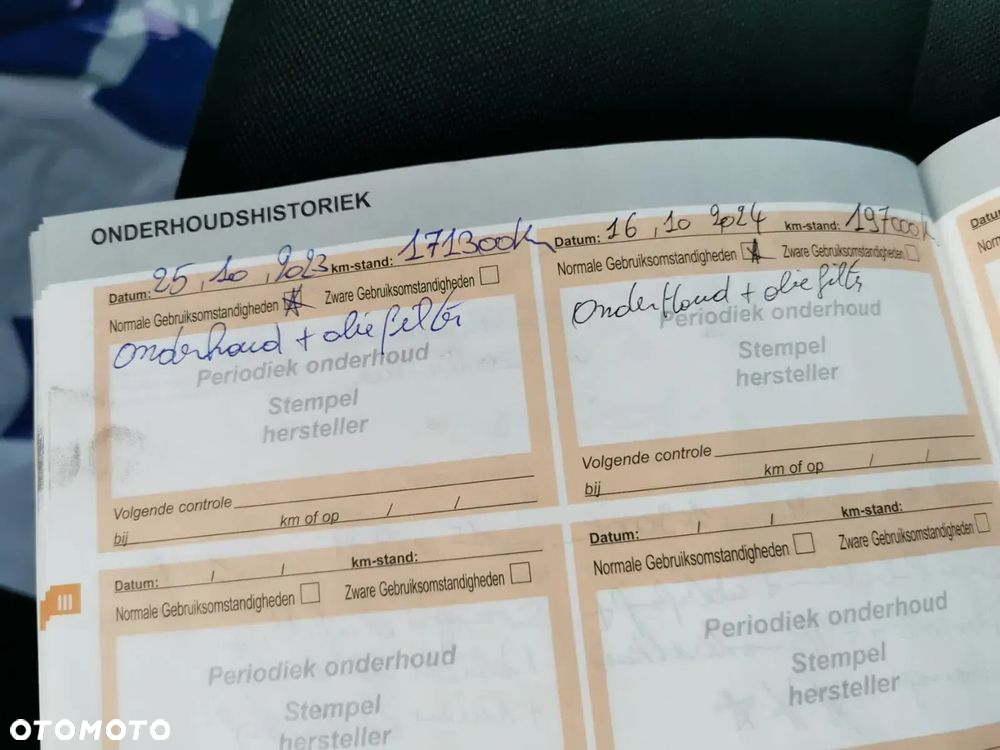 ONDERHOUDSHISTORIEK
Datum: 25, 10, 2023 km-stand: 171300km
Normale Gebruiksomstandigheden Zware Gebruiksomstandigheden
onderhoud + olie filter
Periodiek onderhoud
Stempel
hersteller
Volgende controle
bij km of op / /
Datum: 16, 10 2024 km-stand: 197000k
Normale Gebruiksomstandigheden Zware Gebruiksomstandigheden
onderhoud + olie filter
Periodiek onderhoud
Stempel
hersteller
Volgende controle
bij km of op / /
Datum: / / km-stand:
Normale Gebruiksomstandigheden Zware Gebruiksomstandigheden
Periodiek onderhoud
Stempel
hersteller
Datum: / / km-stand:
Normale Gebruiksomstandigheden Zware Gebruiksomstandigheden
Periodiek onderhoud
Stempel
hersteller
III
OTOMOTO